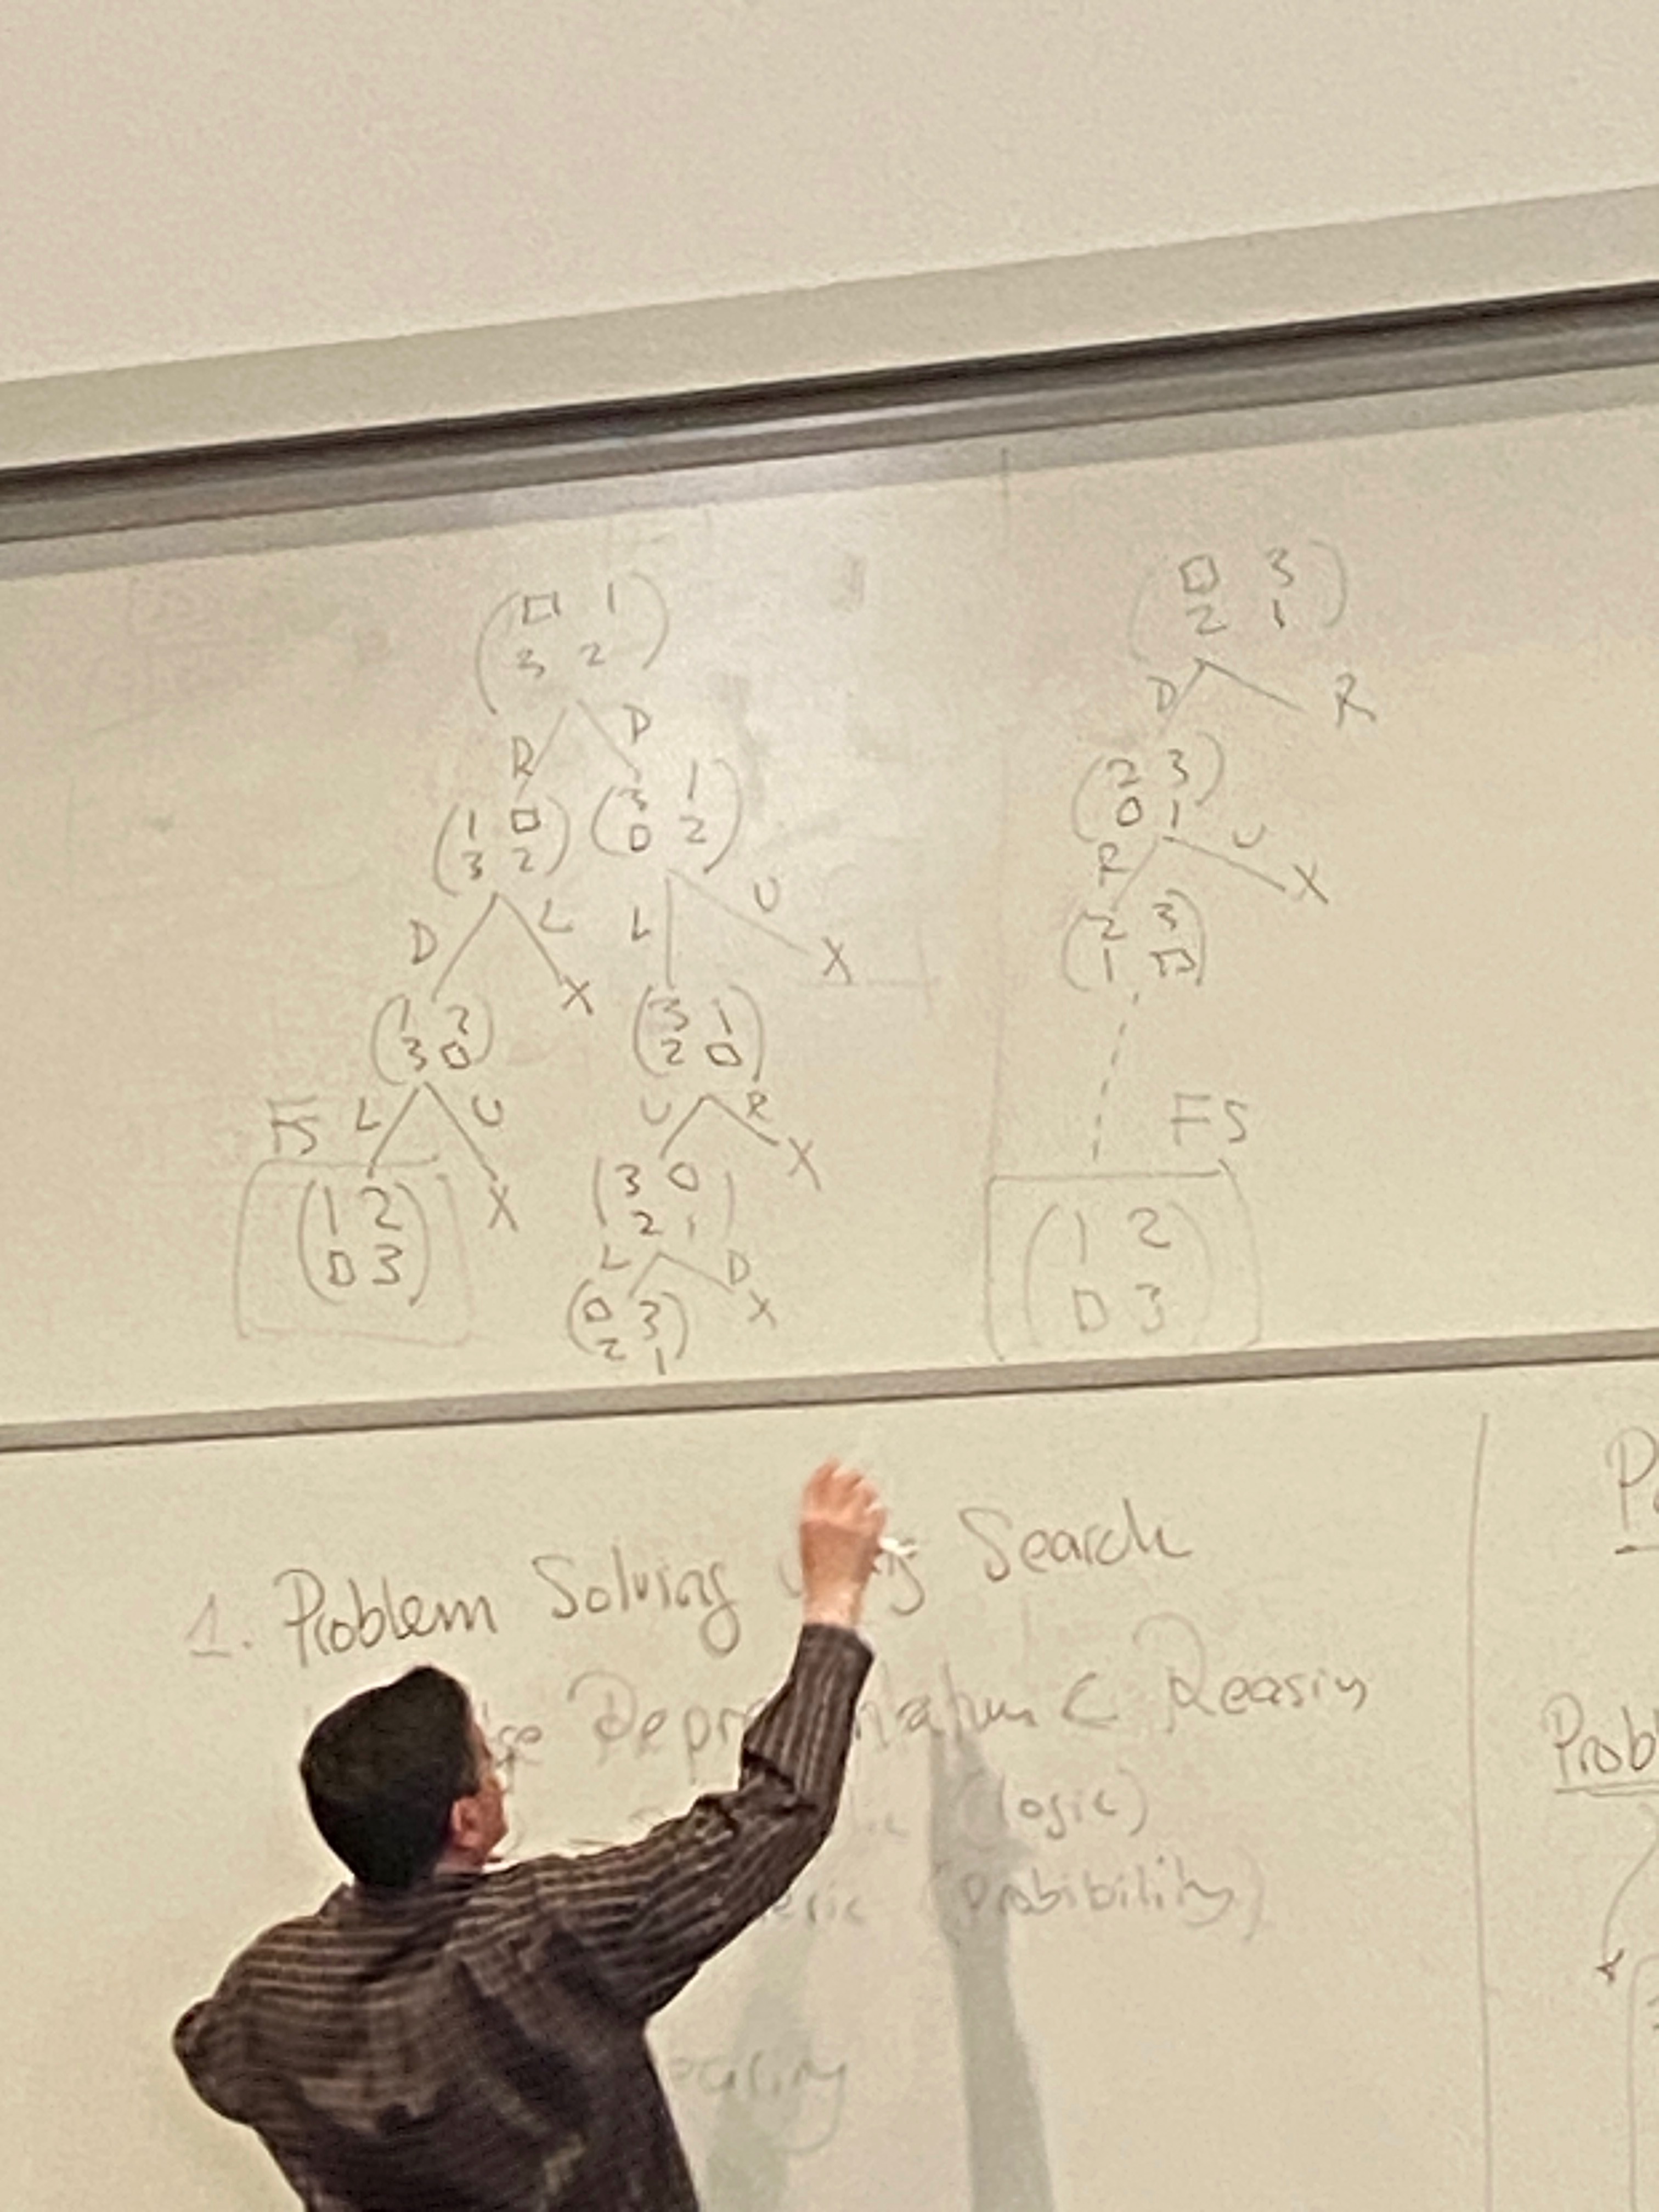 ( □ 1 )
( 3 2 )
R D
( 1 □ ) ( 3 1 )
( 3 2 ) ( 0 2 )
D L L U
X X
( 1 2 ) ( 3 1 )
( 3 0 ) ( 2 0 )
FS L U U R
X X
( 1 2 ) ( 3 0 )
( □ 3 ) ( 2 1 )
L D
X
( 0 3 )
( 2 1 )
( □ 3 )
( 2 1 )
D R
( 2 3 )
( 0 1 )
R U
X
( 2 3 )
( 1 □ )
FS
( 1 2 )
( □ 3 )
1. Problem Solving Search
Reasing
(logic)
(Probibility)
Prob